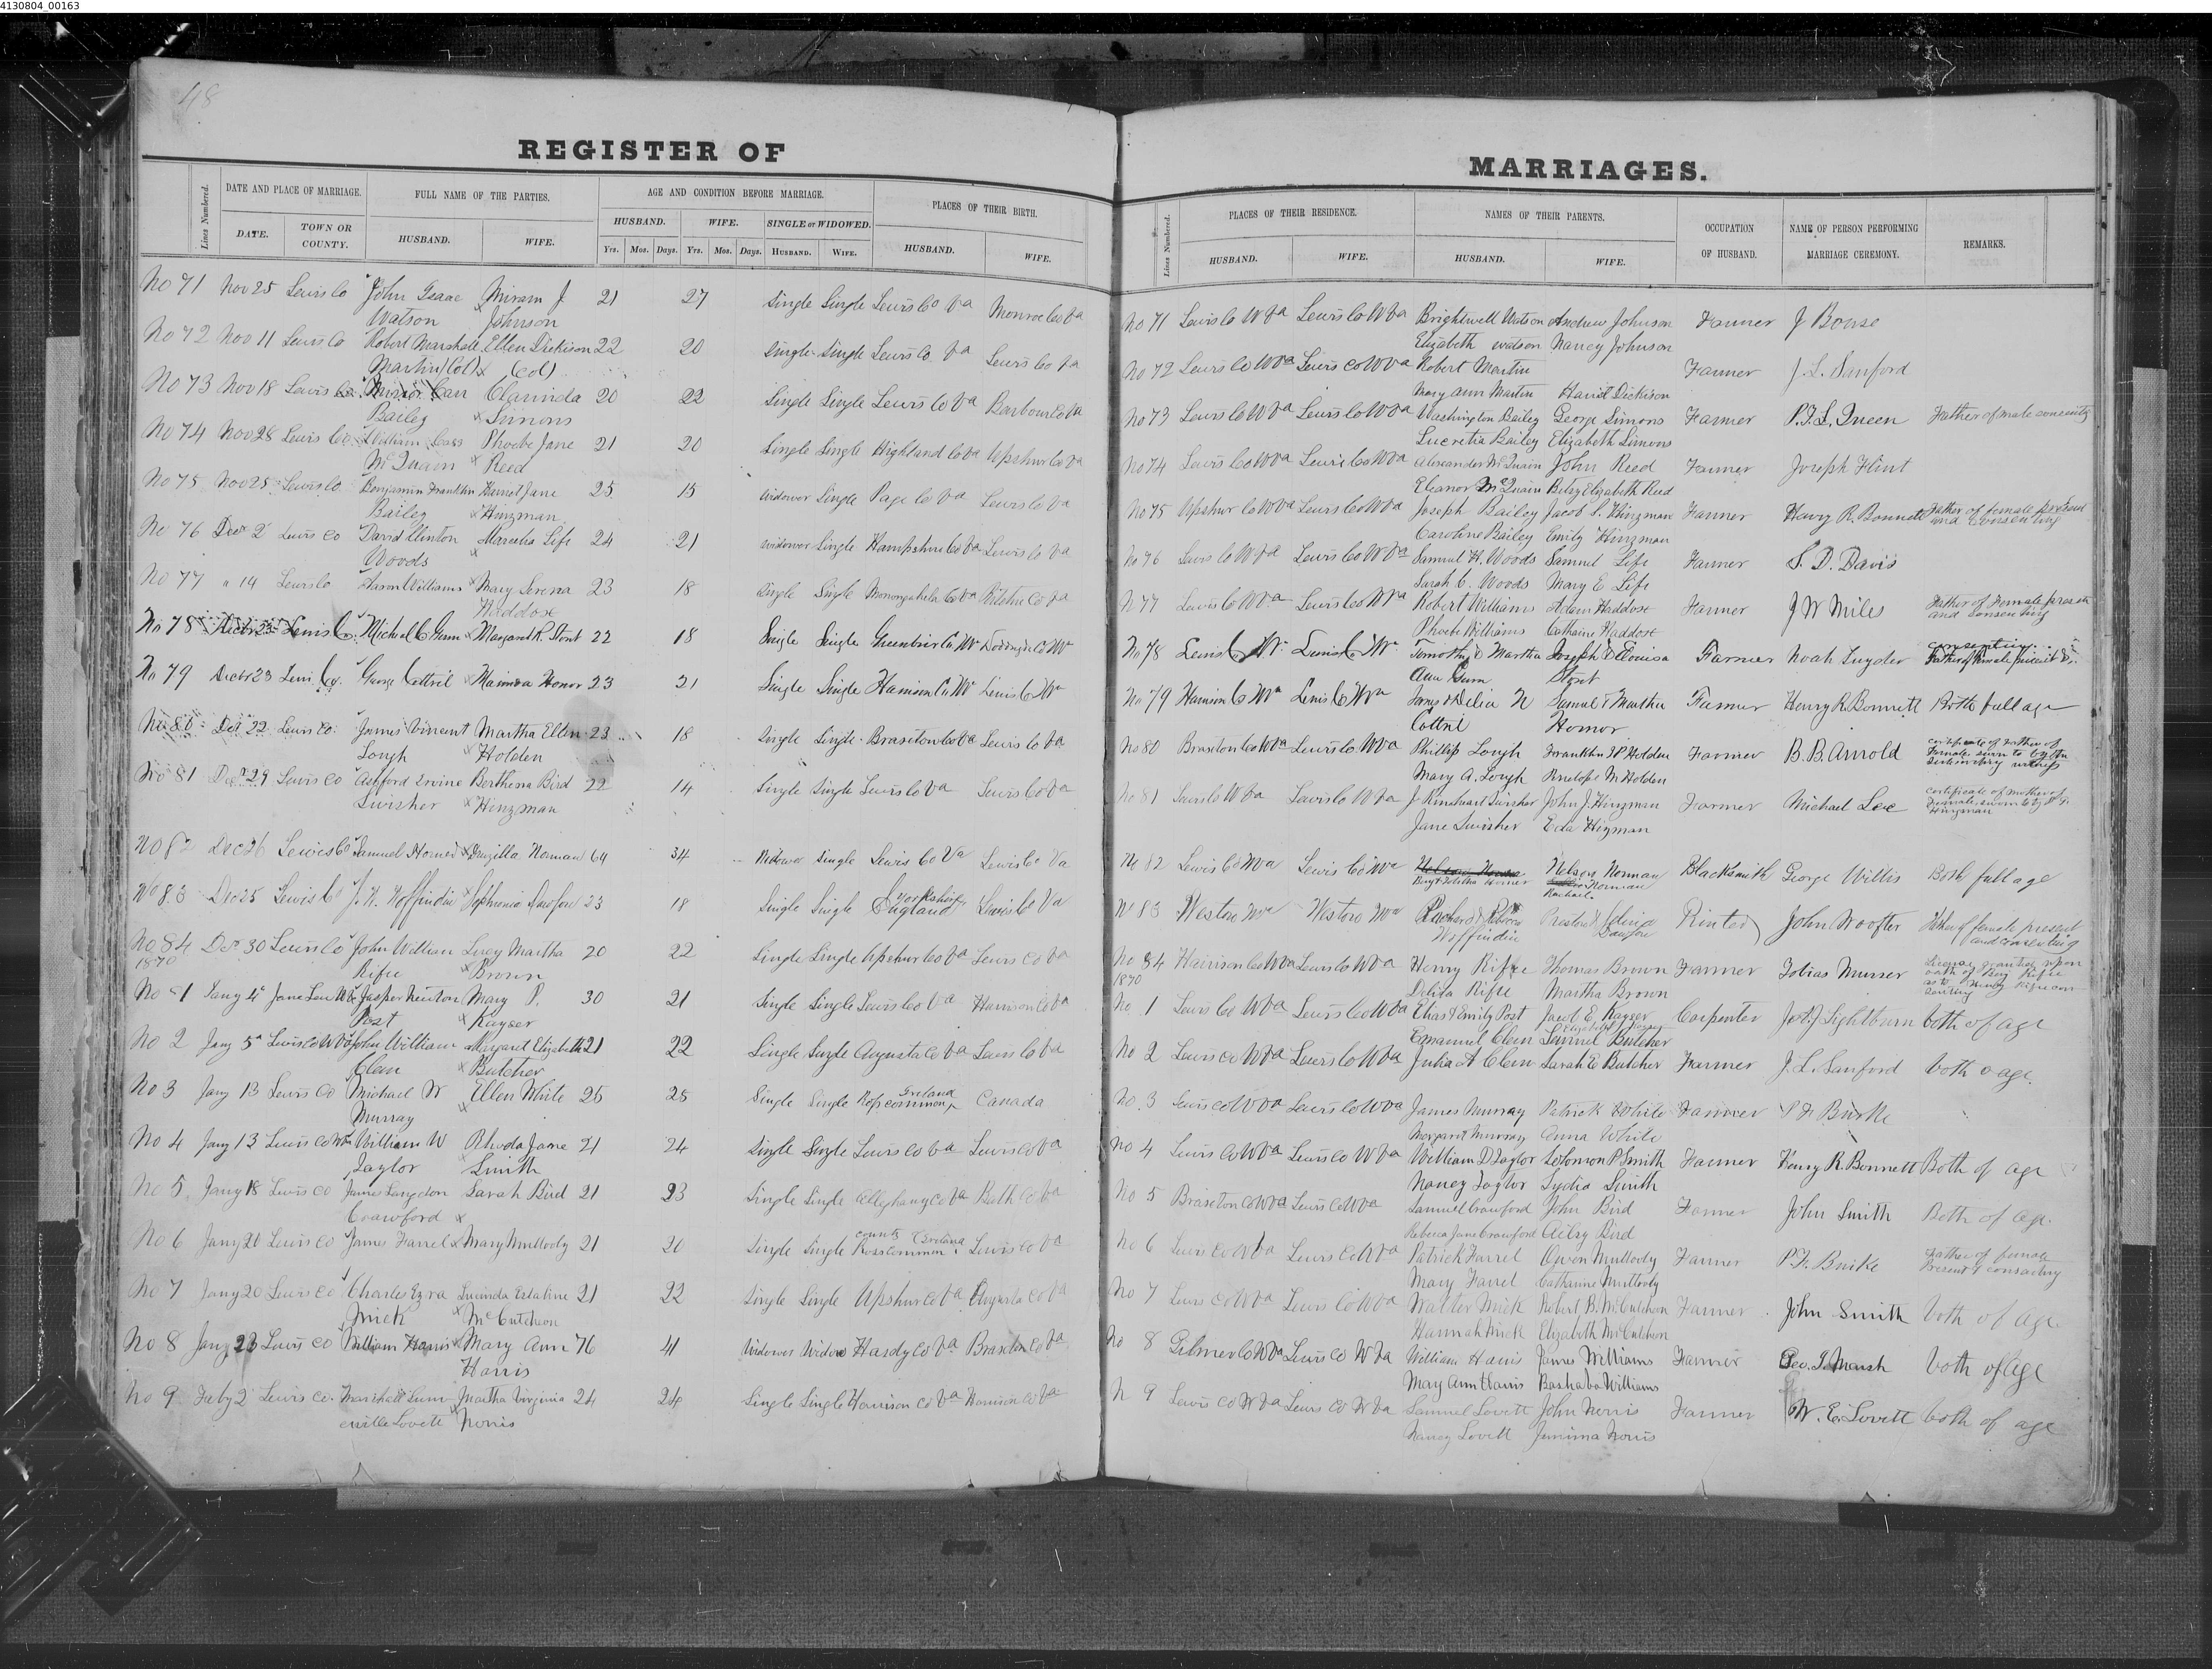 4130804_00163
48
REGISTER OF
MARRIAGES.
Lines Numbered.
DATE AND PLACE OF MARRIAGE.
FULL NAME OF THE PARTIES.
AGE AND CONDITION BEFORE MARRIAGE.
PLACES OF THEIR BIRTH.
DATE.
TOWN OR COUNTY.
HUSBAND.
WIFE.
HUSBAND.
WIFE.
SINGLE or WIDOWED.
HUSBAND.
WIFE.
Yrs. Mos. Days. Yrs. Mos. Days. HUSBAND. WIFE.
No 71 Nov 25 Lewis Co John Isaac Miriam J 21 27 Single Single Lewis Co Va Monroe Co Va
Watson x Johnson
No 72 Nov 11 Lewis Co Robert Marshall Ellen Dickison 22 20 Single Single Lewis Co Va Lewis Co Va
Martin (Col) x (Col)
No 73 Nov 18 Lewis Co Clarinda 20 22 Single Single Lewis Co Va Barbour Co Va
Bailey x Simons
No 74 Nov 28 Lewis Co William Phoebe Jane 21 20 Single Single Highland Co Va Upshur Co Va
McQuain x Reed
No 75 Nov 25 Lewis Co Benjamin Franklin Harriet Jane 25 15 Widower Single Page Co Va Lewis Co Va
Bailey x Hinzman
No 76 Decr 2 Lewis Co David Clinton Life 24 21 Widower Single Hampshire Co Va Lewis Co Va
Woods x
No 77 " 14 Lewis Co Aaron Williams x Mary Serena 23 18 Single Single Monongahela Co Va Ritchie Co Va
Haddox
No 78 Lewis Co. Michael C Gum x Margaret R. Stout 22 18 Single Single Greenbrier Co Wv Doddridge Co Wv
No 79 Decbr 23 Lewis Coy. George Cottril x Honor 23 21 Single Single Harrison Co Wv Lewis Co Wva
No 80 Dec 22 Lewis Co. James Vincent Martha Ellen 23 18 Single Single Braxton Co Va Lewis Co Va
Lough x Holden
No 81 Decr 29 Lewis Co Ashford Ervine Berthena Bird 22 14 Single Single Lewis Co Va Lewis Co Va
Swisher x Hinzman
No 82 Dec 26 Lewis Co Samuel Horner x Druzilla Norman 64 34 Widower Single Lewis Co Va Lewis Co Va
No 83 Dec 25 Lewis Co J. W. Woffindin x Sophronia Dawson 23 18 Single Single Yorkshire England Lewis Co Va
No 84 Decr 30 Lewis Co John William Lucy Martha 20 22 Single Single Upshur Co Va Lewis Co Va
1870 Rifue x Brown
No 1 Jany 4 Jane Lew Wva Jasper Newton Mary P. 30 21 Single Single Lewis Co Va Harrison Co Va
Post x Kayser
No 2 Jany 5th Lewis Co W Va John William Margaret Elizabeth 21 22 Single Single Augusta Co Va Lewis Co Va
Clem x Butcher
No 3 Jany 13 Lewis Co Michael W Ellen White 25 25 Single Single Roscommon, Ireland Canada
Murray x
No 4 Jany 13 Lewis Co Wva William W Rhoda Jane 21 24 Single Single Lewis Co Va Lewis Co Va
Taylor x Smith
No 5 Jany 18 Lewis Co James Langdon Sarah Bird 21 23 Single Single Alleghany Co Va Bath Co Va
Crawford x
No 6 Jany 20 Lewis Co James Farrel x Mary Mullody 21 20 Single Single County Rosscommon Ireland Lewis Co Va
No 7 Jany 20 Lewis Co Charles Ezra Lucinda Estaline 21 22 Single Single Upshur Co Va Augusta Co Va
Mick x McCutcheon
No 8 Jany 23 Lewis Co William Harris x Mary Ann 76 41 Widower Widow Hardy Co Va Braxton Co Va
Harris
No 9 Feby 2 Lewis Co. Marshall Sum- Martha Virginia 24 24 Single Single Harrison Co Va Harrison Co Va
erville Lovett x Norris
Lines Numbered.
PLACES OF THEIR RESIDENCE.
NAMES OF THEIR PARENTS.
OCCUPATION OF HUSBAND.
NAME OF PERSON PERFORMING MARRIAGE CEREMONY.
REMARKS.
HUSBAND.
WIFE.
HUSBAND.
WIFE.
No 71 Lewis Co W Va Lewis Co W Va Brightwell Watson Andrew Johnson Farmer J Bonse
Elizabeth Watson Nancy Johnson
No 72 Lewis Co W Va Lewis Co W Va Robert Martin Farmer J. L. Sanford
Mary Ann Martin Hariet Dickison
No 73 Lewis Co W Va Lewis Co W Va Washington Bailey George Simons Farmer P.F.L. Queen Father of male consenting
Lucretia Bailey Elizabeth Simons
No 74 Lewis Co W Va Lewis Co W Va Alexander McQuain John Reed Farmer Joseph Flint
Eleanor McQuain Betsy Elizabeth Reed
No 75 Upshur Co W Va Lewis Co W Va Joseph Bailey Jacob S. Hinzman Farmer Henry R. Bonnett Father of female present and consenting
Caroline Bailey Emily Hinzman
No 76 Lewis Co W Va Lewis Co W Va Samuel H. Woods Samuel Life Farmer S. D. Davis
Sarah C. Woods Mary E Life
N 77 Lewis Co W Va Lewis Co W Va Robert Williams Adam Haddox Farmer J W Miles Father of Female present and consenting
Phoebe Williams Catharine Haddox
No 78 Lewis Co W. Lewis Co W. Timothy & Martha Joseph & Louisa Farmer Noah Snyder consenting Father of female present &
Ann Gum Stout
No 79 Harrison Co Wva Lewis Co Wva James & Delia N Samuel & Martha Farmer Henry R. Bonnett Both full age
Cottril Honor
No 80 Braxton Co W Va Lewis Co W Va Phillip Lough Franklin P Holden Farmer B. B. Arnold certificate of father of Female sworn to by the
Mary A. Lough Penelope M Holden
No 81 Lewis Co W Va Lewis Co W Va J Rinehart Swisher John J. Hinzman Farmer Michael Lee certificate of mother of Female sworn to by Hinzman
Jane Swisher Eda Hinzman
No 82 Lewis Co Wva Lewis Co Wva Nelson Norman Blacksmith George Willis Both full age
Norman
Rachael.
No 83 Weston Wva Weston Wva Richard & Woffindin Preston & Dawson Printer John Woofter Father of female present and consenting
No 84 Harrison Co W Va Lewis Co W Va Henry Rifue Thomas Brown Farmer Tobias Musser License granted upon oath of Rifue as to Henry Rifue consenting
1870 Delita Rifue Martha Brown
No 1 Lewis Co W Va Lewis Co W Va Elias & Emily Post Jacob E. Kayser Carpenter J.A.J Lightburn both of age
Elizabeth Kayser
Emanuel Clem Samuel Butcher
No 2 Lewis Co W Va Lewis Co W Va Julia A Clem Sarah E Butcher Farmer J. L. Sanford both o age.
No. 3 Lewis Co W Va Lewis Co W Va James Murray Patrick White Farmer P F Burke
Margaret Murray Anna White
No 4 Lewis Co W Va Lewis Co W Va William D Taylor Solomon P Smith Farmer Henry R. Bonnett Both of age
Nancy Taylor Lydia Smith
No 5 Braxton Co W Va Lewis Co W Va Samuel Crawford John Bird Farmer John Smith Both of age.
Rebecca Jane Crawford Ailsy Bird
No 6 Lewis Co W Va Lewis Co W Va Patrick Farrel Owen Mullody Farmer P. F. Burke Father of female Present & consenting
Mary Farrel Catharine Mullody
No 7 Lewis Co W Va Lewis Co W Va Walter Mick Robert B. McCutchen Farmer John Smith both of age
Hannah Mick Elizabeth McCutchen
No 8 Gilmer Co W Va Lewis Co W Va William Harris James Williams Farmer Geo. T. Marsh both of age
Mary Ann Harris Bashaba Williams
N 9 Lewis Co W Va Lewis Co W Va Samuel Lovett John Norris Farmer W. E. Lovett both of age
Nancy Lovett Jemima Norris